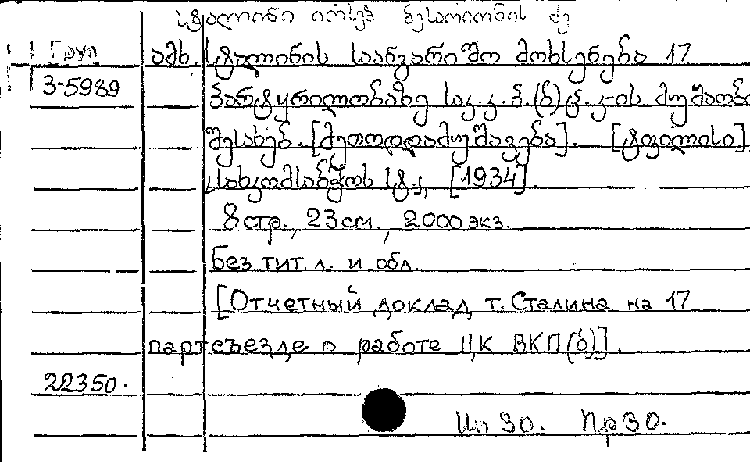 სტალინი იოსებ ბესარიონის ძე
Груз ამხ. სტალინის საანგარიშო მოხსენება 17
3-5989 პარტყრილობაზე საკ.კ.პ.(ბ)ც.კ-ის მუშაობის
შესახებ. [მეთოდდამუშავება]. [ტფილისი]
სახკომსაბჭოს სტ., [1934].
8 стр., 23 см., 2000 экз.
без тит. л. и обл.
[Отчетный доклад т. Сталина на 17
партсъезде о работе ЦК ВКП(б)].
22350.
30. Пр 30.